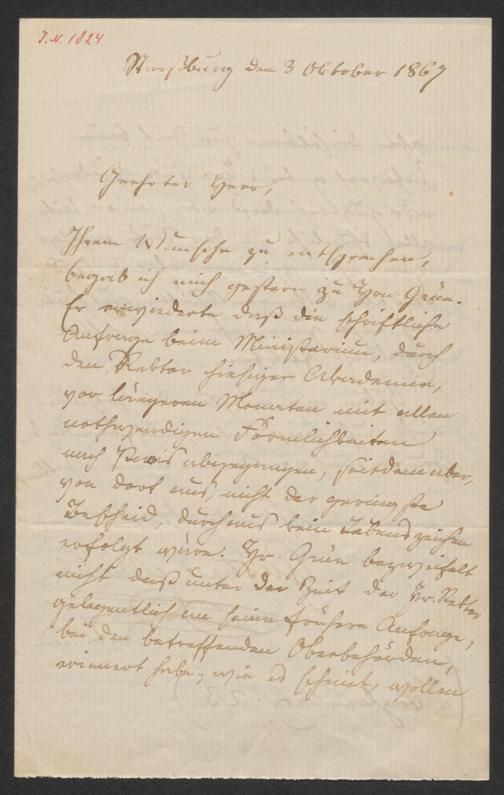 J.N. 1824
Straßburg den 3 Oktober 1867
Geehrter Herr,
Ihrem Wunsche zu entsprechen,
begab ich mich gestern zu Hrn Grün.
Er erwiederte daß die schriftliche
Anfrage beim Ministerium, durch
den Rektor hiesiger Akademie,
vor längeren Monaten mit allen
nothwendigen Förmlichkeiten
nach Paris abgegangen, seitdem aber,
von dort aus, nicht der geringste
Bescheid, durchaus kein Lebenszeichen
erfolgt wäre. Hr. Grün bezweifelt
nicht daß unter der Zeit der Hr. Rektor
gelegentlich an seine frühere Anfrage,
bei den betreffenden Oberbehörden,
erinnert habe; wie es scheint, wollen